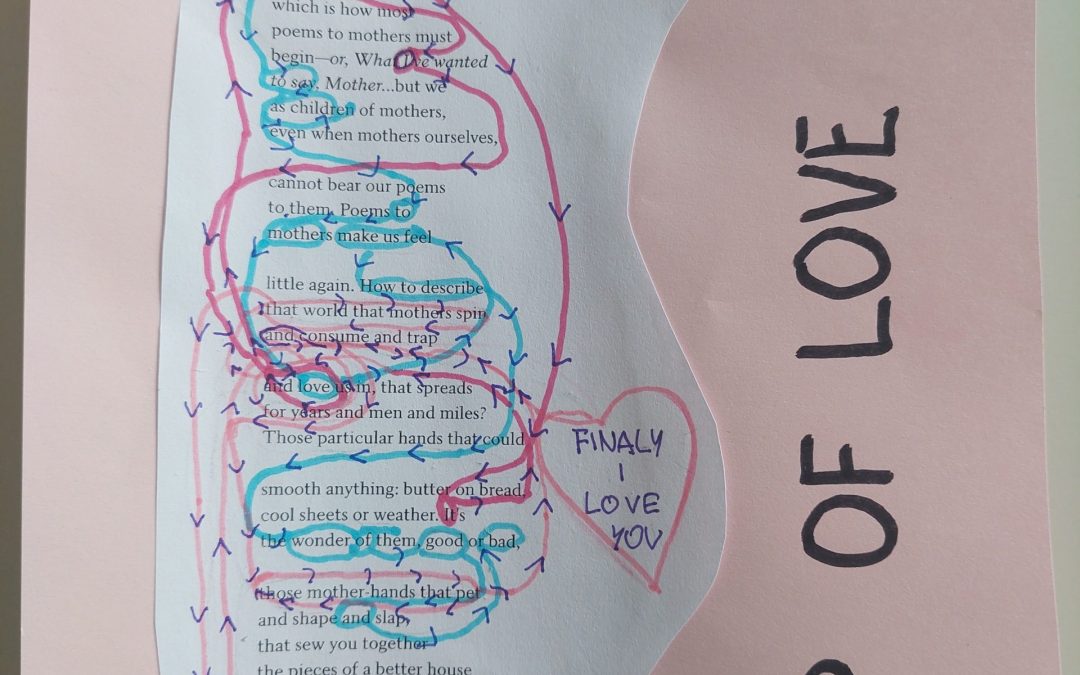 which is how most
poems to mothers must
begin—or, What I've wanted
to say, Mother...but we
as children of mothers,
even when mothers ourselves,
cannot bear our poems
to them. Poems to
mothers make us feel
little again. How to describe
that world that mothers spin
and consume and trap
and love us in, that spreads
for years and men and miles?
Those particular hands that could
smooth anything: butter on bread,
cool sheets or weather. It's
the wonder of them, good or bad,
those mother-hands that pet
and shape and slap,
that sew you together
the pieces of a better house
FINALY
I
LOVE
YOU
OF LOVE